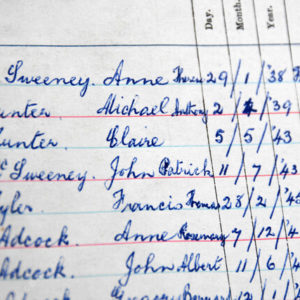 Day. Month. Year.
Sweeney. Anne Theresa 29/1/'38
unter. Michael Anthony 2/ /'39
unter. Claire 5/5/'43
Sweeney. John Patrick 11/7/'43
yler. Francis Thomas 28/2/'43
Adcock. Anne Rosemary 7/12/'4
Adcock. John Albert 11/6/'4
Gregory Bernard 12/1/